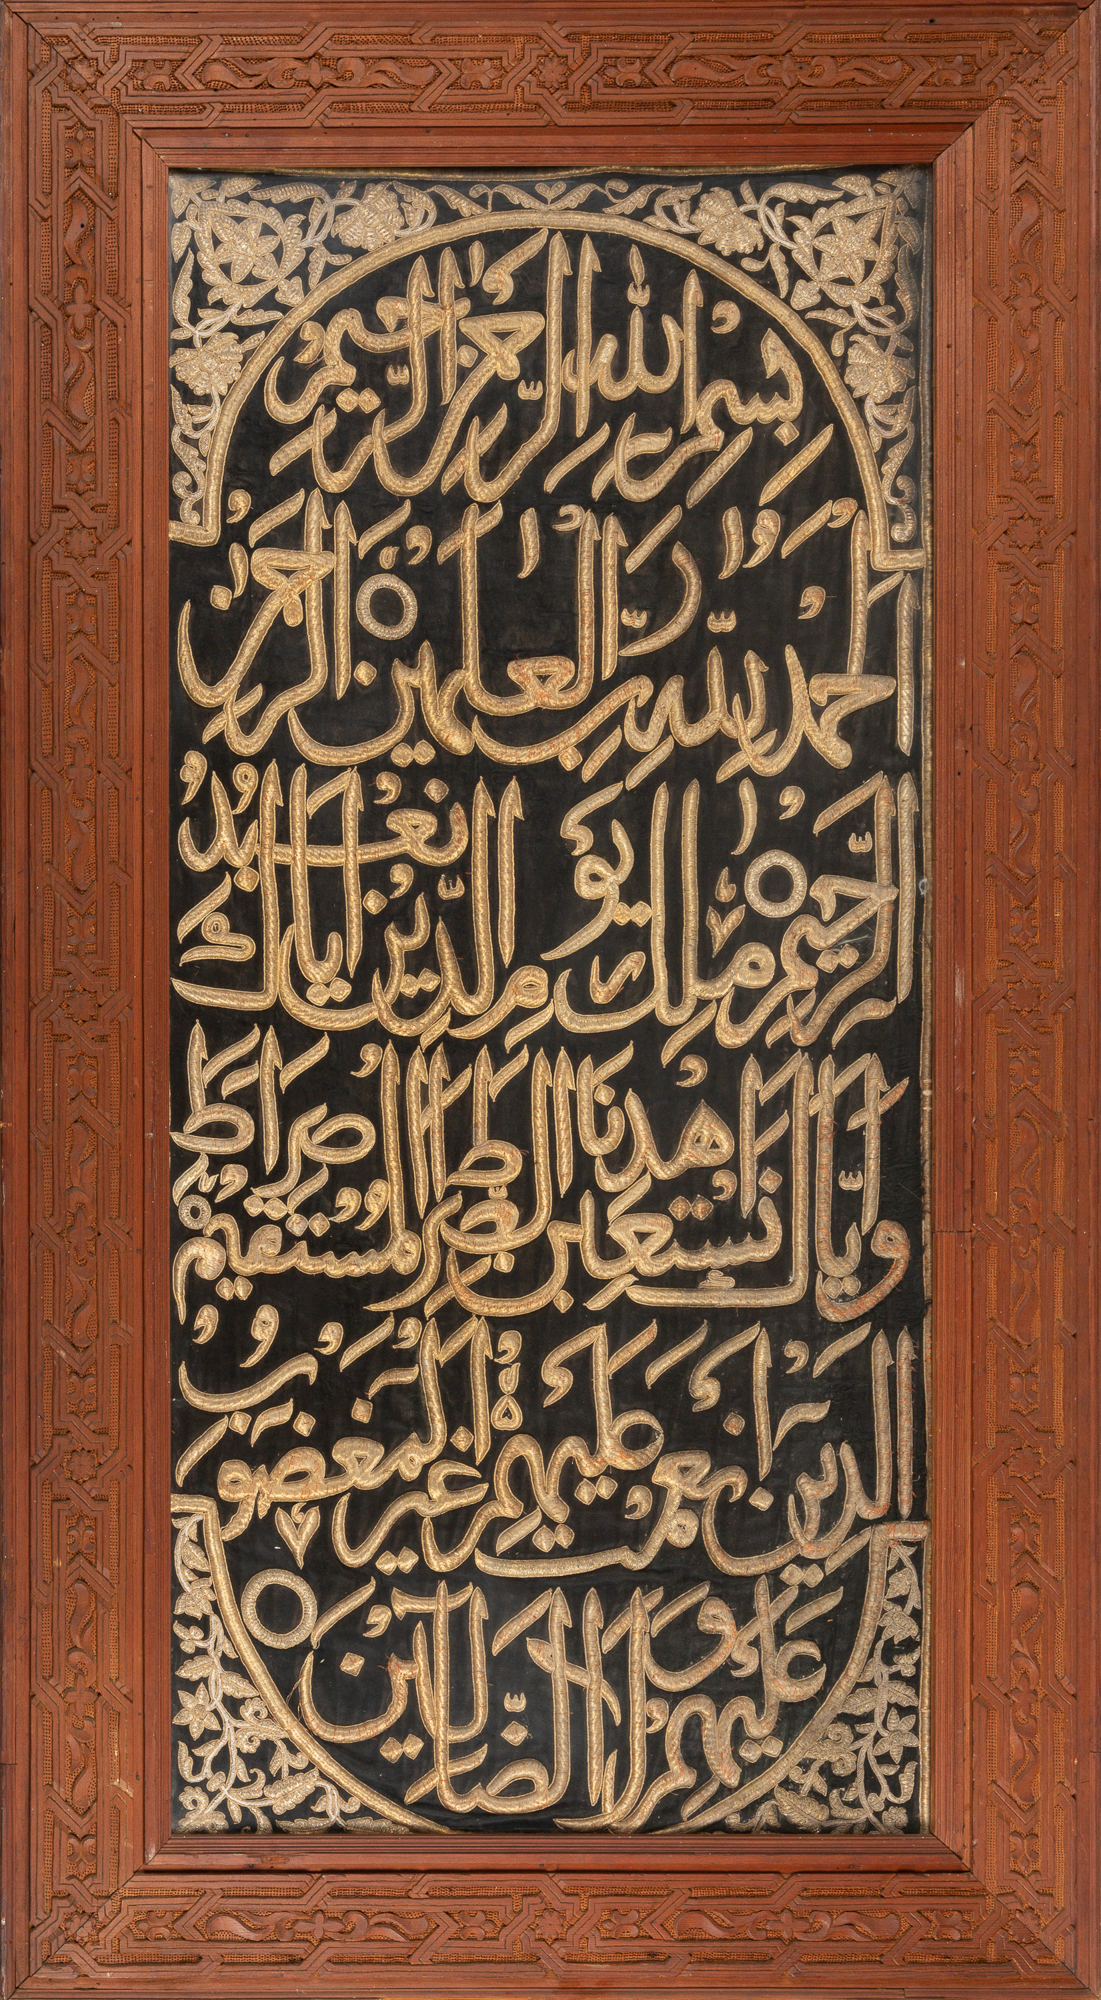 بِسْمِ اللهِ الرَّحْمٰنِ الرَّحِيمِ
اَلْحَمْدُ لِلّٰهِ رَبِّ الْعٰلَمِينَ الرَّحْمٰنِ
الرَّحِيمِ مٰلِكِ يَوْمِ الدِّينِ اِيَّاكَ نَعْبُدُ
وَاِيَّاكَ نَسْتَعِينُ اِهْدِنَا الصِّرَاطَ الْمُسْتَقِيمَ صِرَاطَ
الَّذِينَ اَنْعَمْتَ عَلَيْهِمْ غَيْرِ الْمَغْضُوبِ
عَلَيْهِمْ وَلَا الضَّآلِّينَ